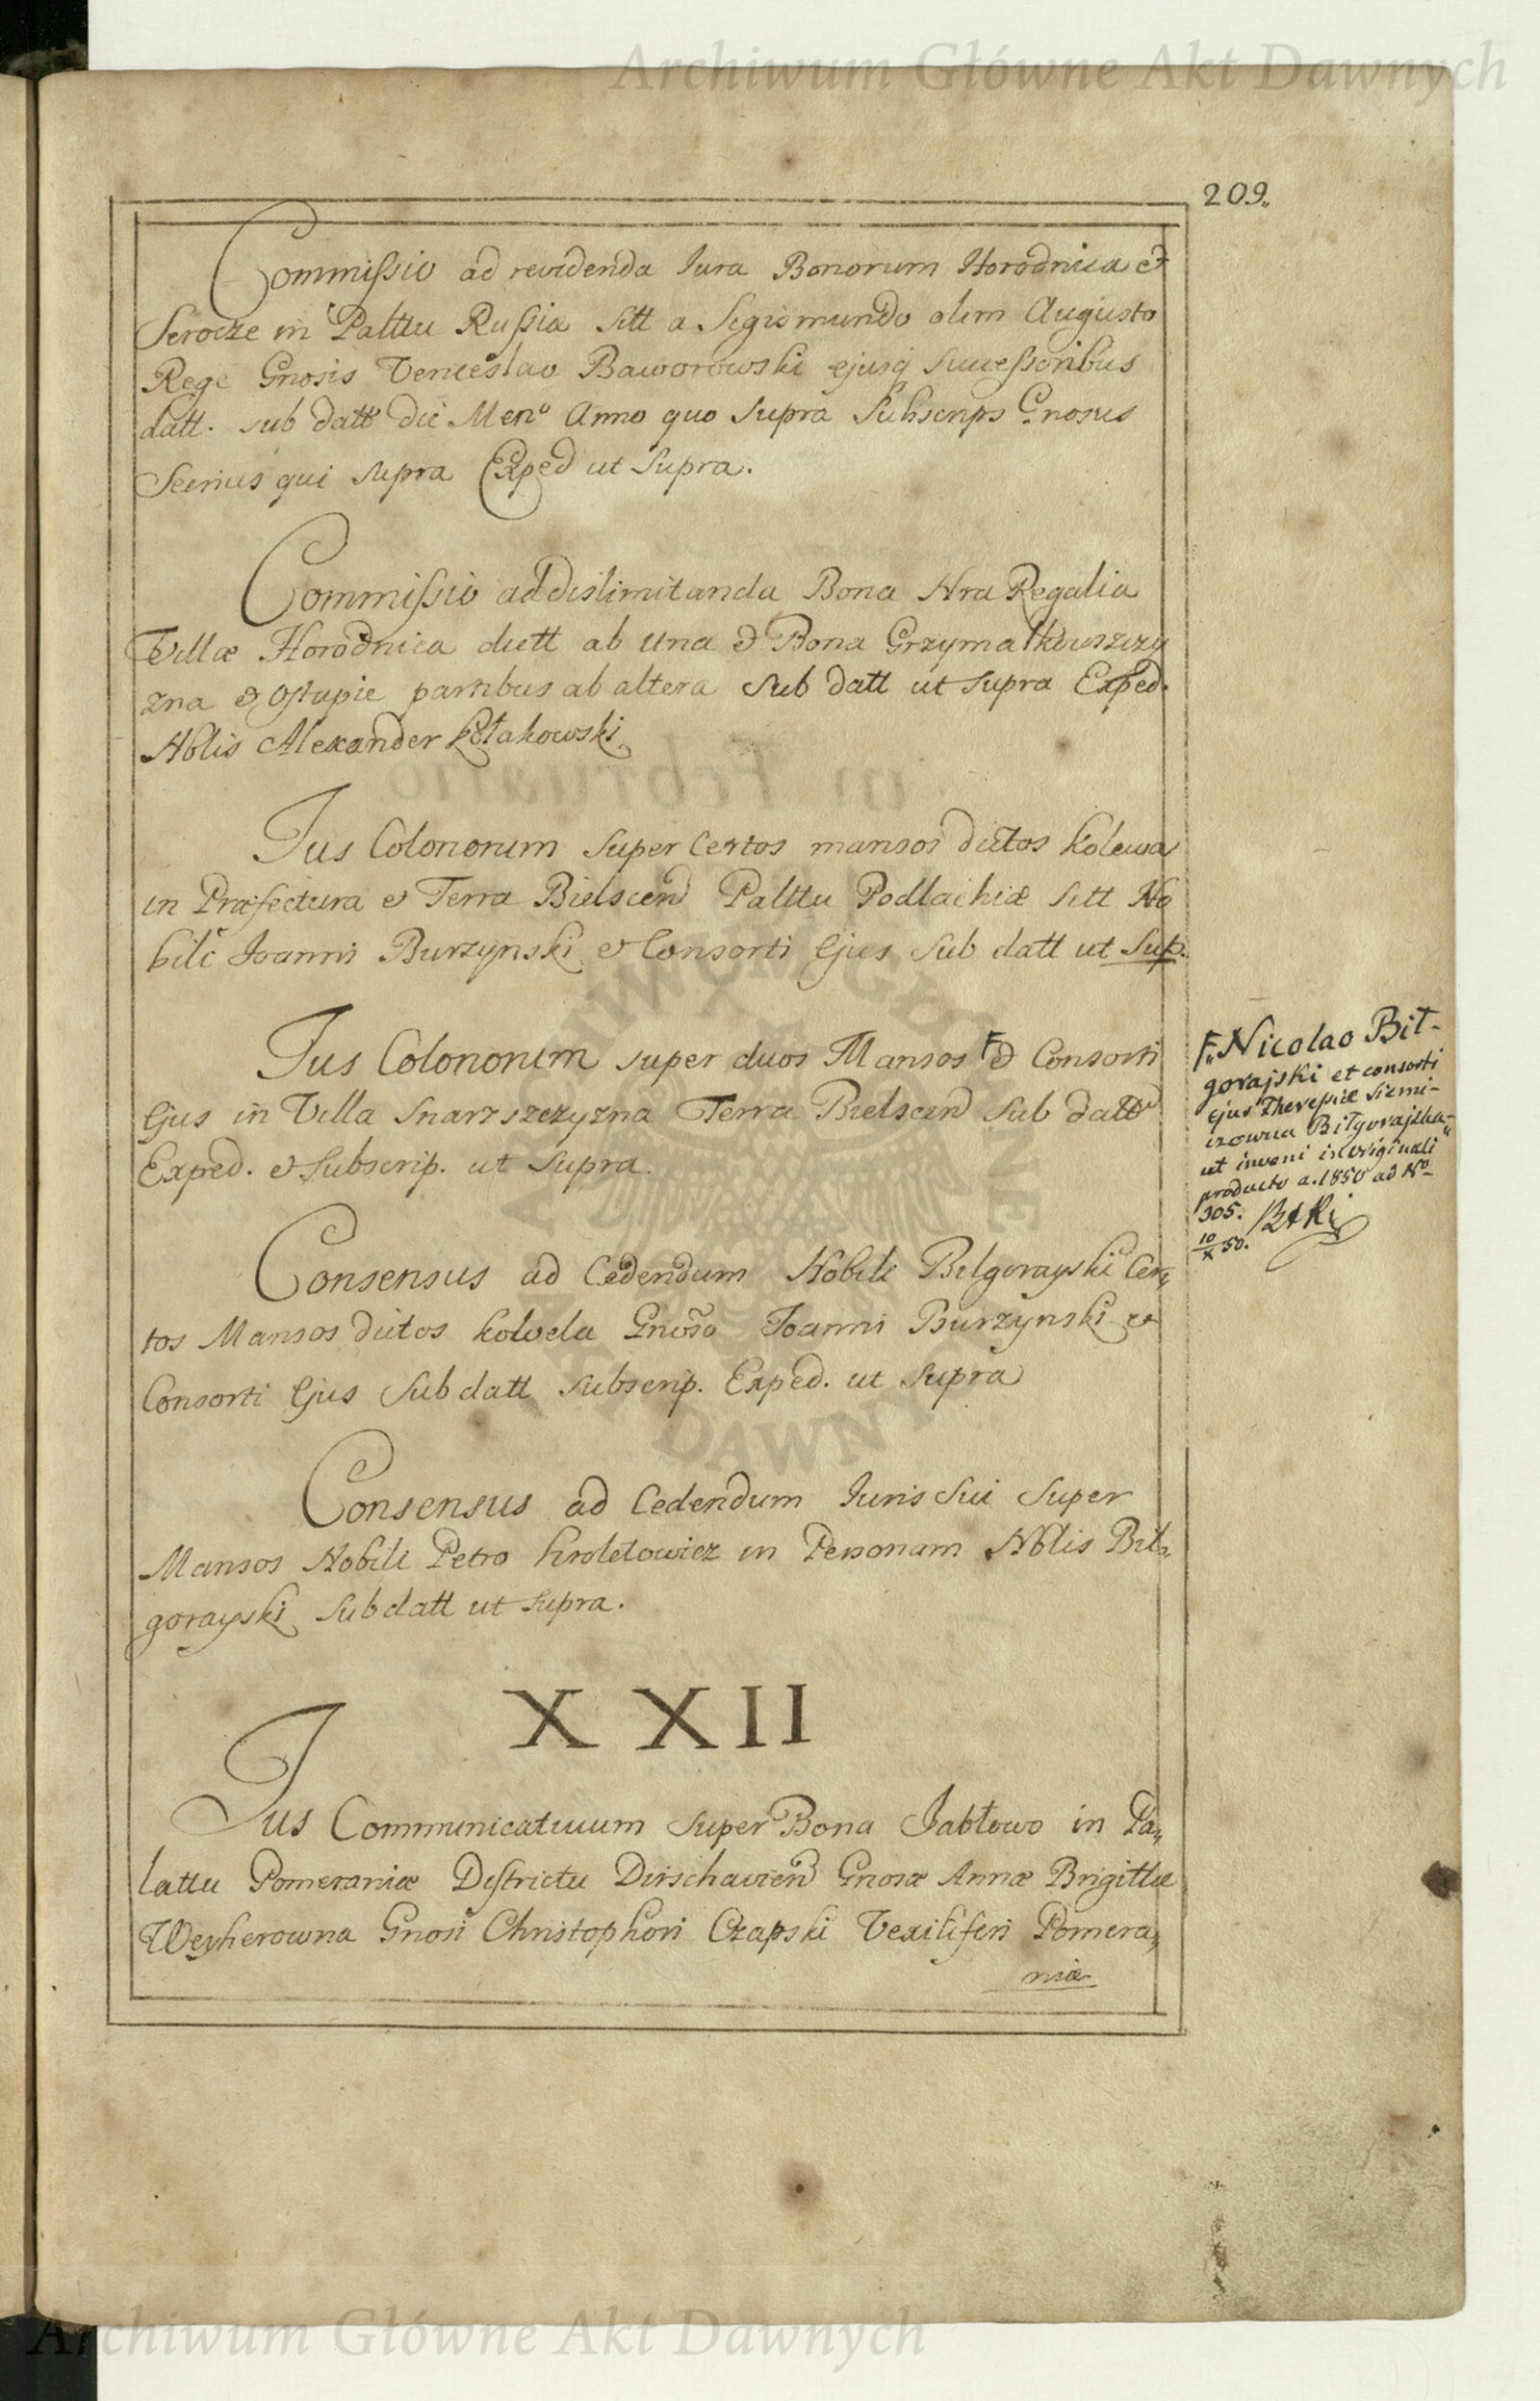 Archiwum Główne Akt Dawnych
209.
Commissio ad revidenda Iura Bonorum Horodnica et
Serocze in Palttu Russiæ Sitt a Sigismundo olim Augusto
Rege Gnosis Venceslao Baworowski ejusq Successoribus
datt. sub datt die Men° Anno quo Supra Subscrips Gnosus
Secrius qui Supra Exped ut Supra.
Commissio ad dislimitanda Bona Nra Regalia
Villæ Horodnica dictt ab una et Bona Grzymałkowszczy
zna et Ostapie partibus ab altera Sub datt ut Supra Exped.
Nblis Alexander Kołakowski
Ius Colonorum Super Certos mansos dictos Kolewa
in Præfectura et Terra Bielscen Palttu Podlachiæ Sitt No
bili Ioanni Burzynski et Consorti Ejus Sub datt ut Sup.
Ius Colonorum super duos Mansos F et Consorti
Ejus in Villa Snarzszczyzna Terra Bielscen Sub datt
Exped. et Subscrip. ut Supra.
F„ Nicolao Bił-
gorajski et consorti
ejus Theressiæ Siemi-
izowna Biłgorajska„
ut inveni in originali
producto a. 1850 ad No
305.
10/X 50.
Consensus ad Cedendum Nobili Bilgorayski Cer„
tos Mansos dictos Kolvela Gnoso Ioanni Burzynski et
Consorti Ejus Sub datt Subscrip. Exped. ut Supra
Consensus ad Cedendum Iuris Sui Super
Mansos Nobili Petro Kroletowicz in Personam Nblis Bil„
gorayski Sub datt ut Supra.
XXII
Ius Communicativum Super Bona Jabłowo in Pa„
lattu Pomeraniæ Districtu Dirschavien Gnosæ Annæ Brigittæ
Weyherowna Gnosi Christophori Czapski Vexiliferi Pomera„
niæ
ARCHIWUM GŁÓWNE
AKT DAWNYCH
Archiwum Główne Akt Dawnych